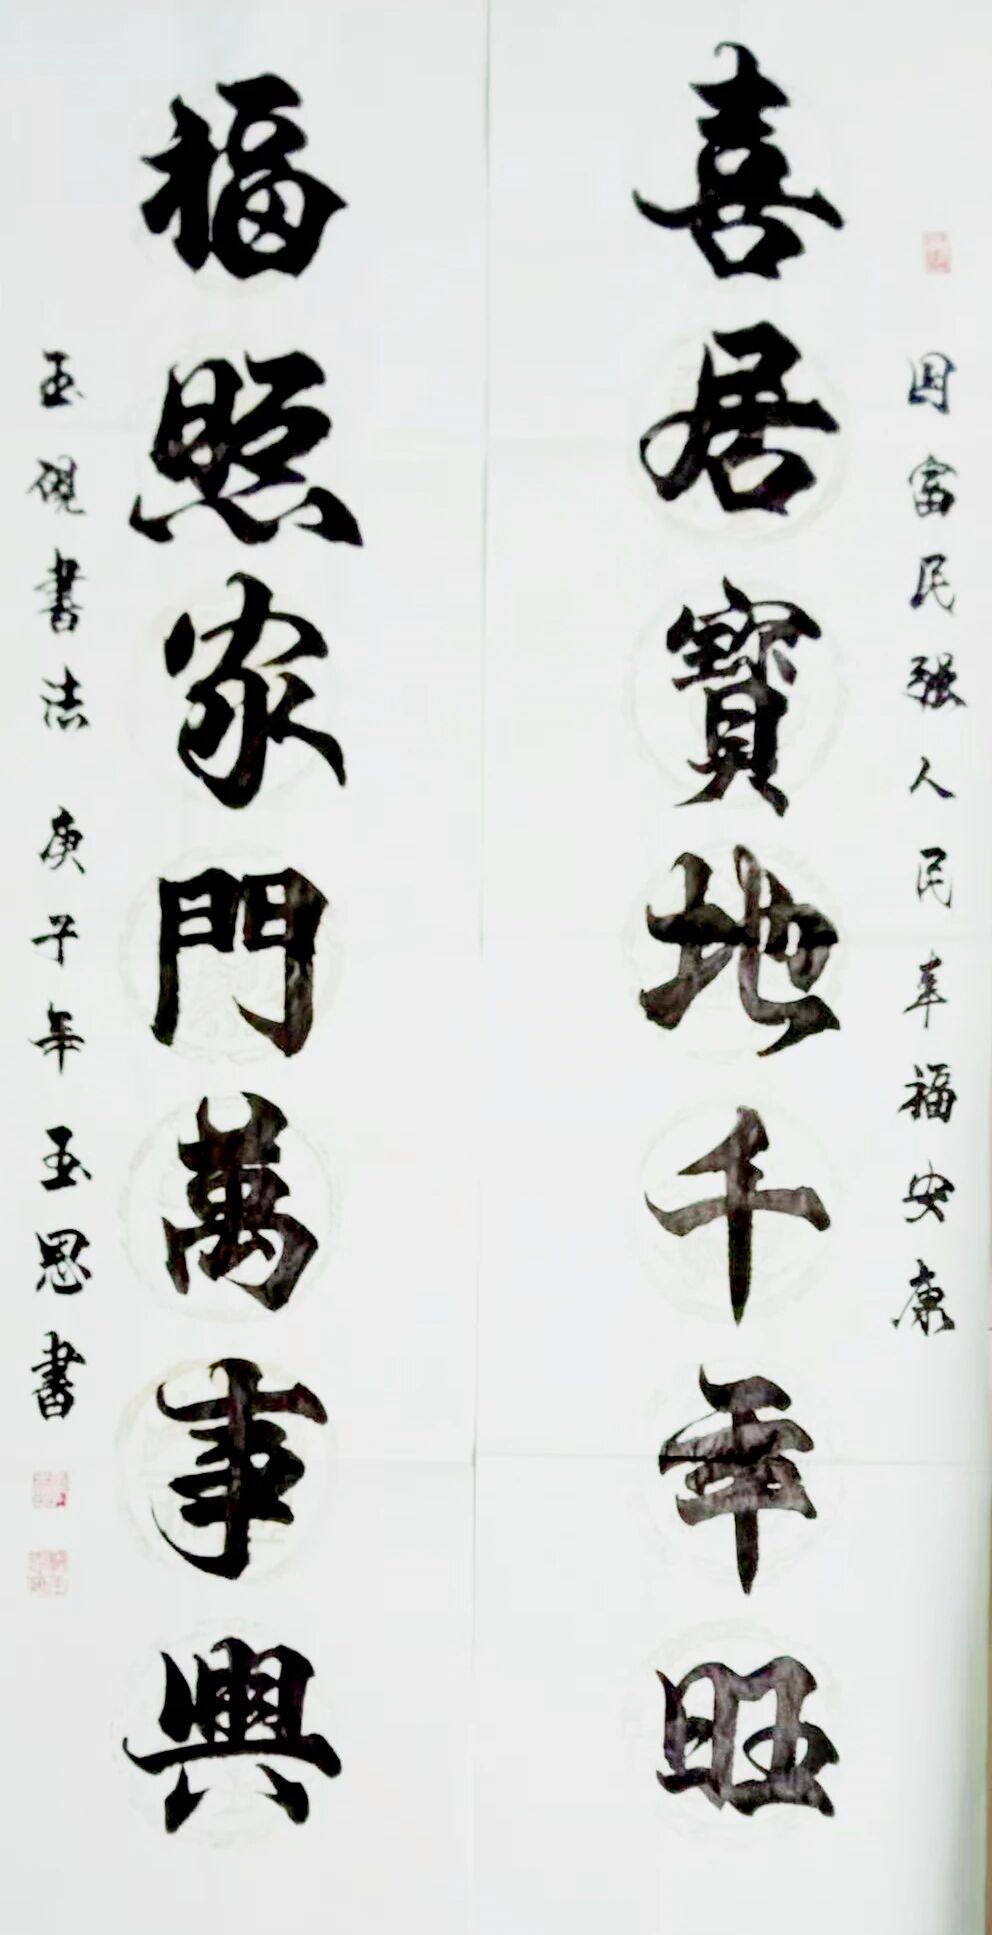 国富民强人民幸福安康
喜居寶地千年旺
福照家門萬事興
玉砚書法 庚子年玉恩書